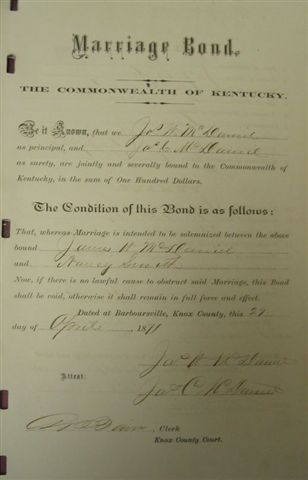 Marriage Bond.
THE COMMONWEALTH OF KENTUCKY.
Be it Known, that we Jas W. McDaniel
as principal, and Jas C McDaniel
as surety, are jointly and severally bound to the Commonwealth of
Kentucky, in the sum of One Hundred Dollars.
The Condition of this Bond is as follows:
That, whereas Marriage is intended to be solemnized between the above
bound James W McDaniel
and Nancy Smith
Now, if there is no lawful cause to obstruct said Marriage, this Bond
shall be void, otherwise it shall remain in full force and effect.
Dated at Barboursville, Knox County, this
day of April, 187
Jas W McDaniel
Attest:
Jas C McDaniel
Clerk
Knox County Court.